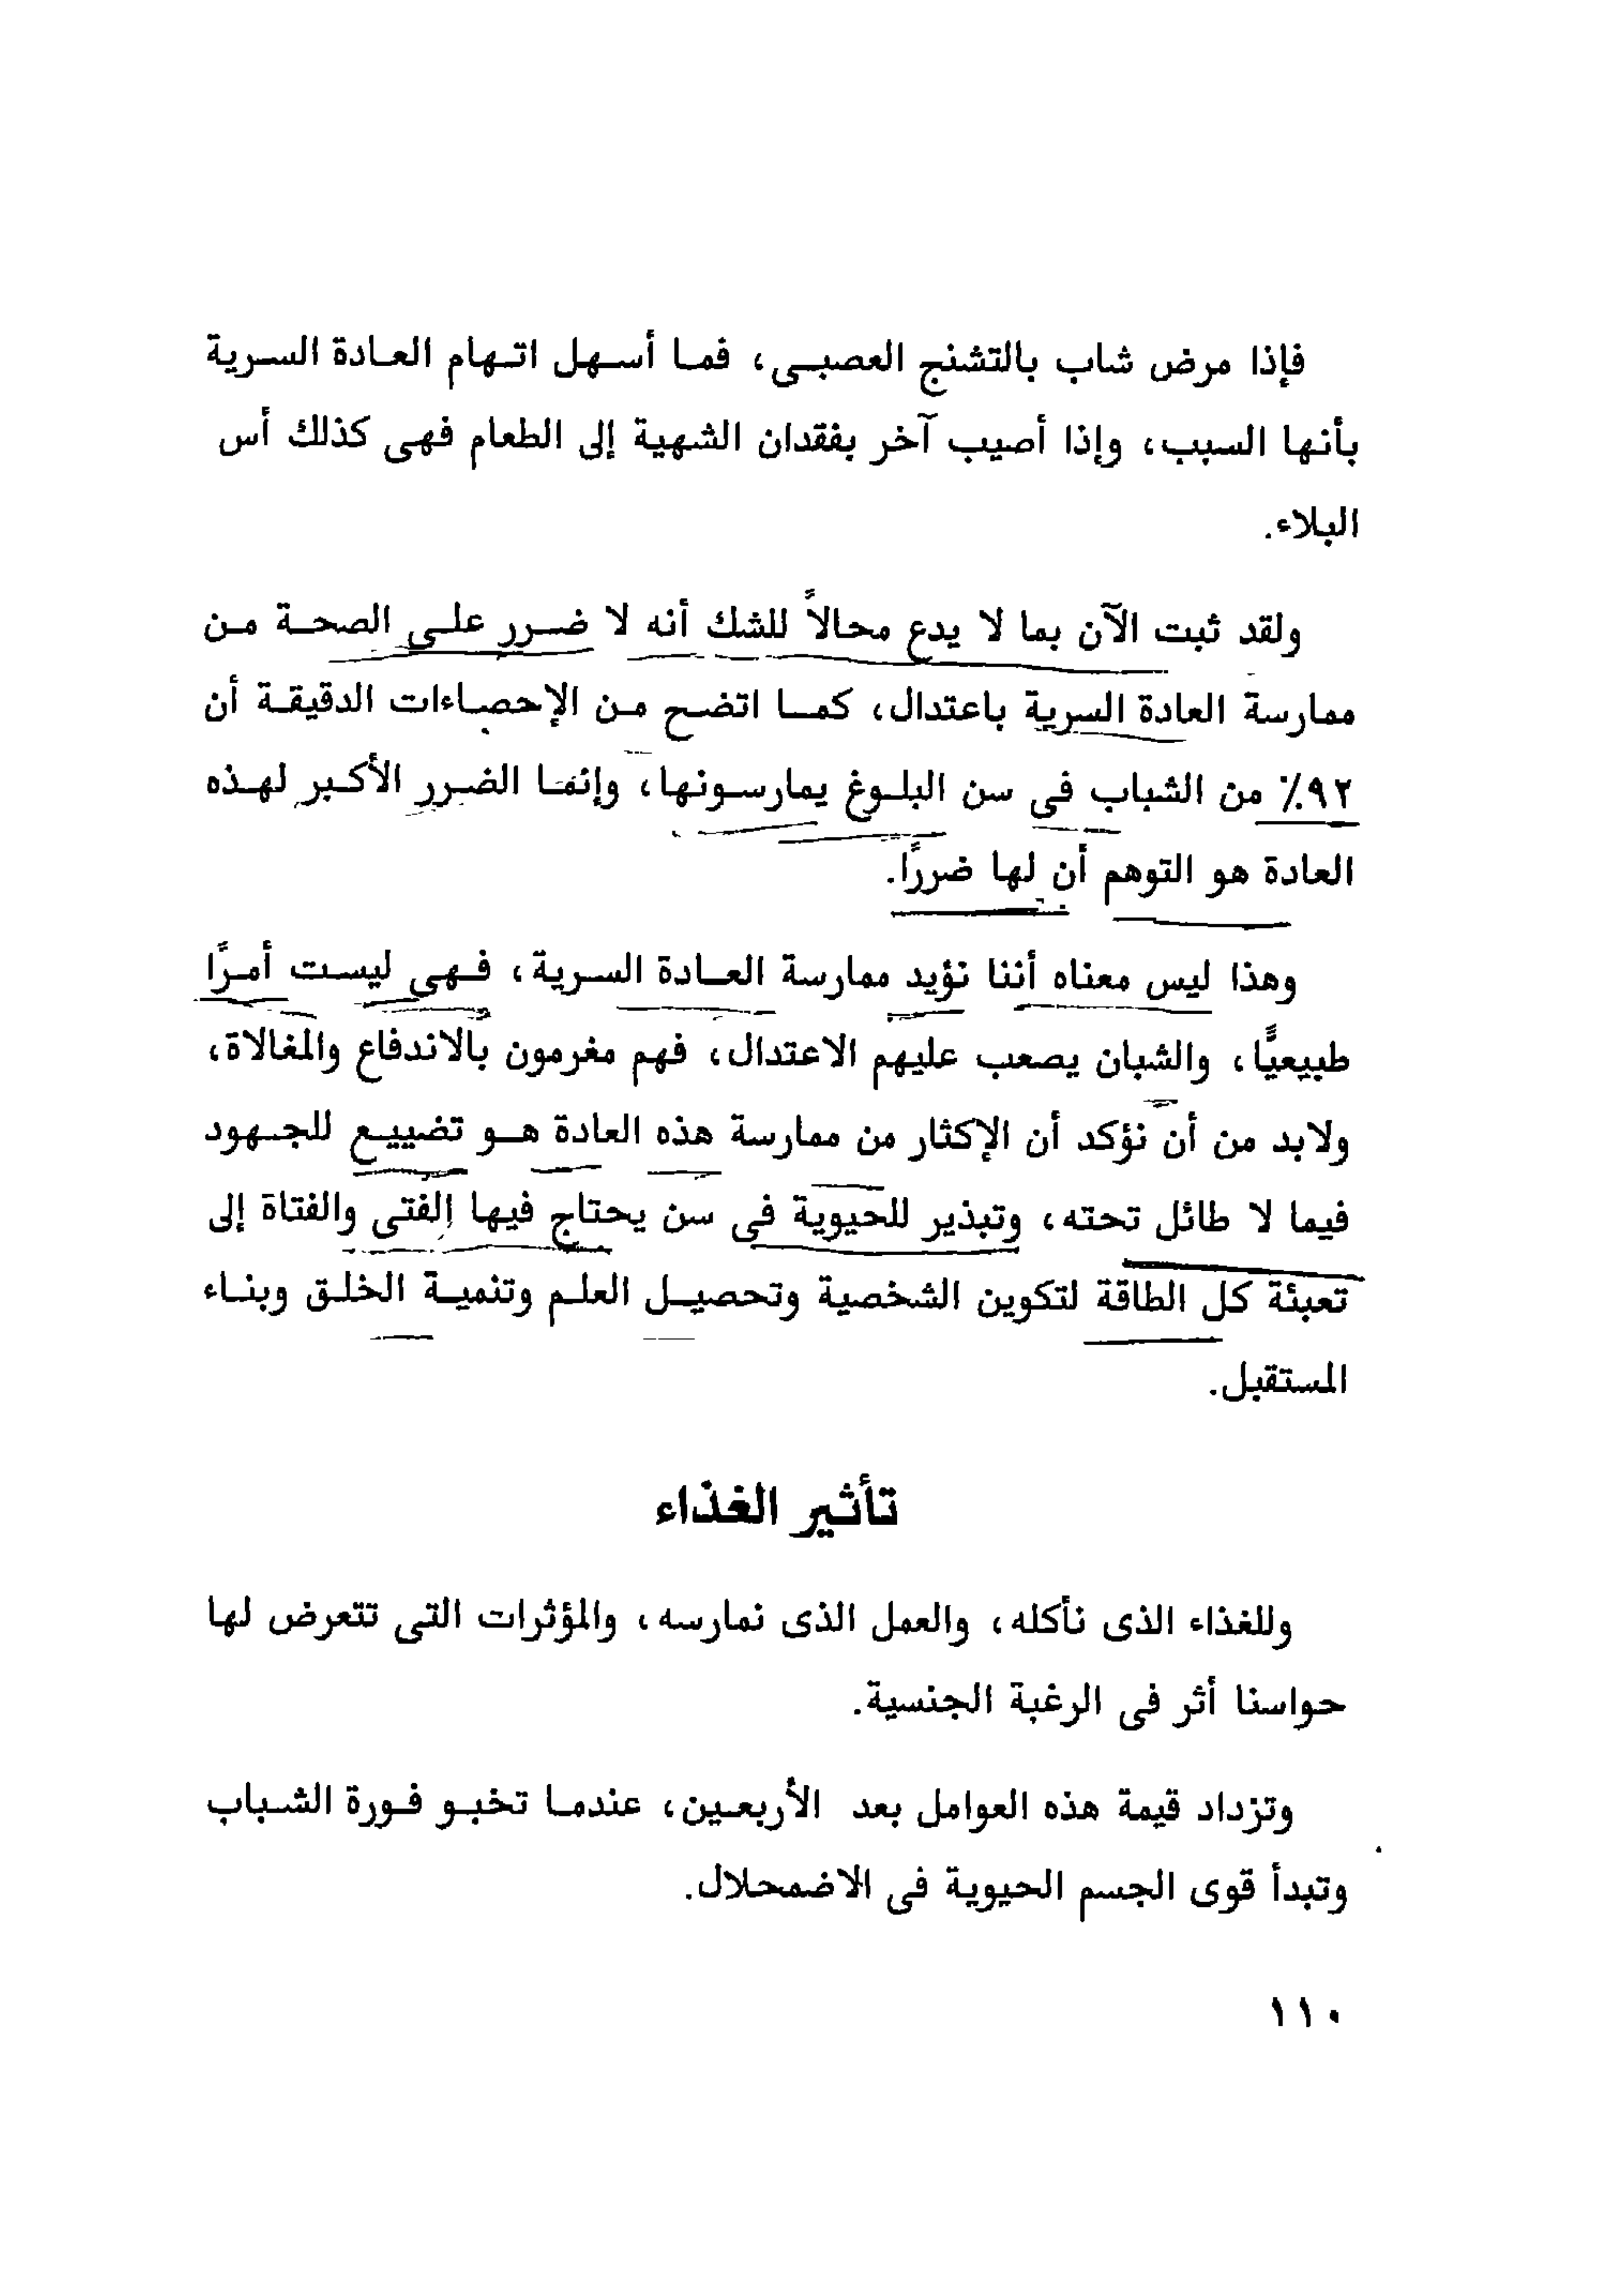 فإذا مرض شاب بالتشنج العصبى، فما أسهل اتهام العادة السرية
بأنها السبب، وإذا أصيب آخر بفقدان الشهية إلى الطعام فهى كذلك أس
البلاء.
ولقد ثبت الآن بما لا يدع محالاً للشك أنه لا ضرر على الصحة من
ممارسة العادة السرية باعتدال، كما اتضح من الإحصاءات الدقيقة أن
٩٢٪ من الشباب فى سن البلوغ يمارسونها، وإنما الضرر الأكبر لهذه
العادة هو التوهم أن لها ضررًا.
وهذا ليس معناه أننا نؤيد ممارسة العادة السرية، فهى ليست أمرًا
طبيعيًّا، والشبان يصعب عليهم الاعتدال، فهم مغرمون بالاندفاع والمغالاة،
ولابد من أن نؤكد أن الإكثار من ممارسة هذه العادة هو تضييع للجهود
فيما لا طائل تحته، وتبذير للحيوية فى سن يحتاج فيها الفتى والفتاة إلى
تعبئة كل الطاقة لتكوين الشخصية وتحصيل العلم وتنمية الخلق وبناء
المستقبل.
تأثير الغذاء
وللغذاء الذى نأكله، والعمل الذى نمارسه، والمؤثرات التى تتعرض لها
حواسنا أثر فى الرغبة الجنسية.
وتزداد قيمة هذه العوامل بعد الأربعين، عندما تخبو فورة الشباب
وتبدأ قوى الجسم الحيوية فى الاضمحلال.
١١٠